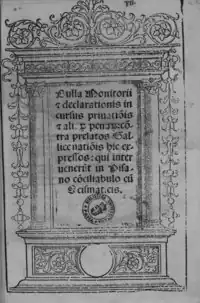 Bulla Monitorii
⁊ declarationis in
cursus priuatiõis
⁊ ali. ⁊ penarũ cõ
tra prelatos Gal
lice nationis hic ex
pressos: qui inter
uenerũt in Pisa
no cõciliabulo cũ
Scismaticis.